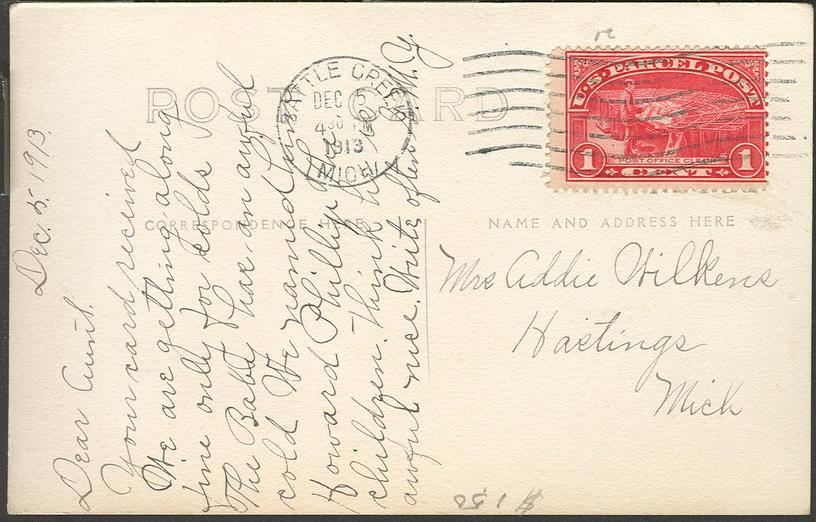 POST CARD
CORRESPONDENCE HERE
NAME AND ADDRESS HERE
BATTLE CREEK
DEC 5
430 PM
1913
MICH
U.S. PARCEL POST
POST OFFICE CLERK
1 CENT 1
Mrs Addie Wilkens
Hastings
Mich
Dec. 5, 1913.
Dear Aunt.
Your card received
We are getting along
fine only for colds
The Baby has an awful
cold We named him
Howard Phillip the
children think he is
awful nice. Write often M.Y.
$ 1 50